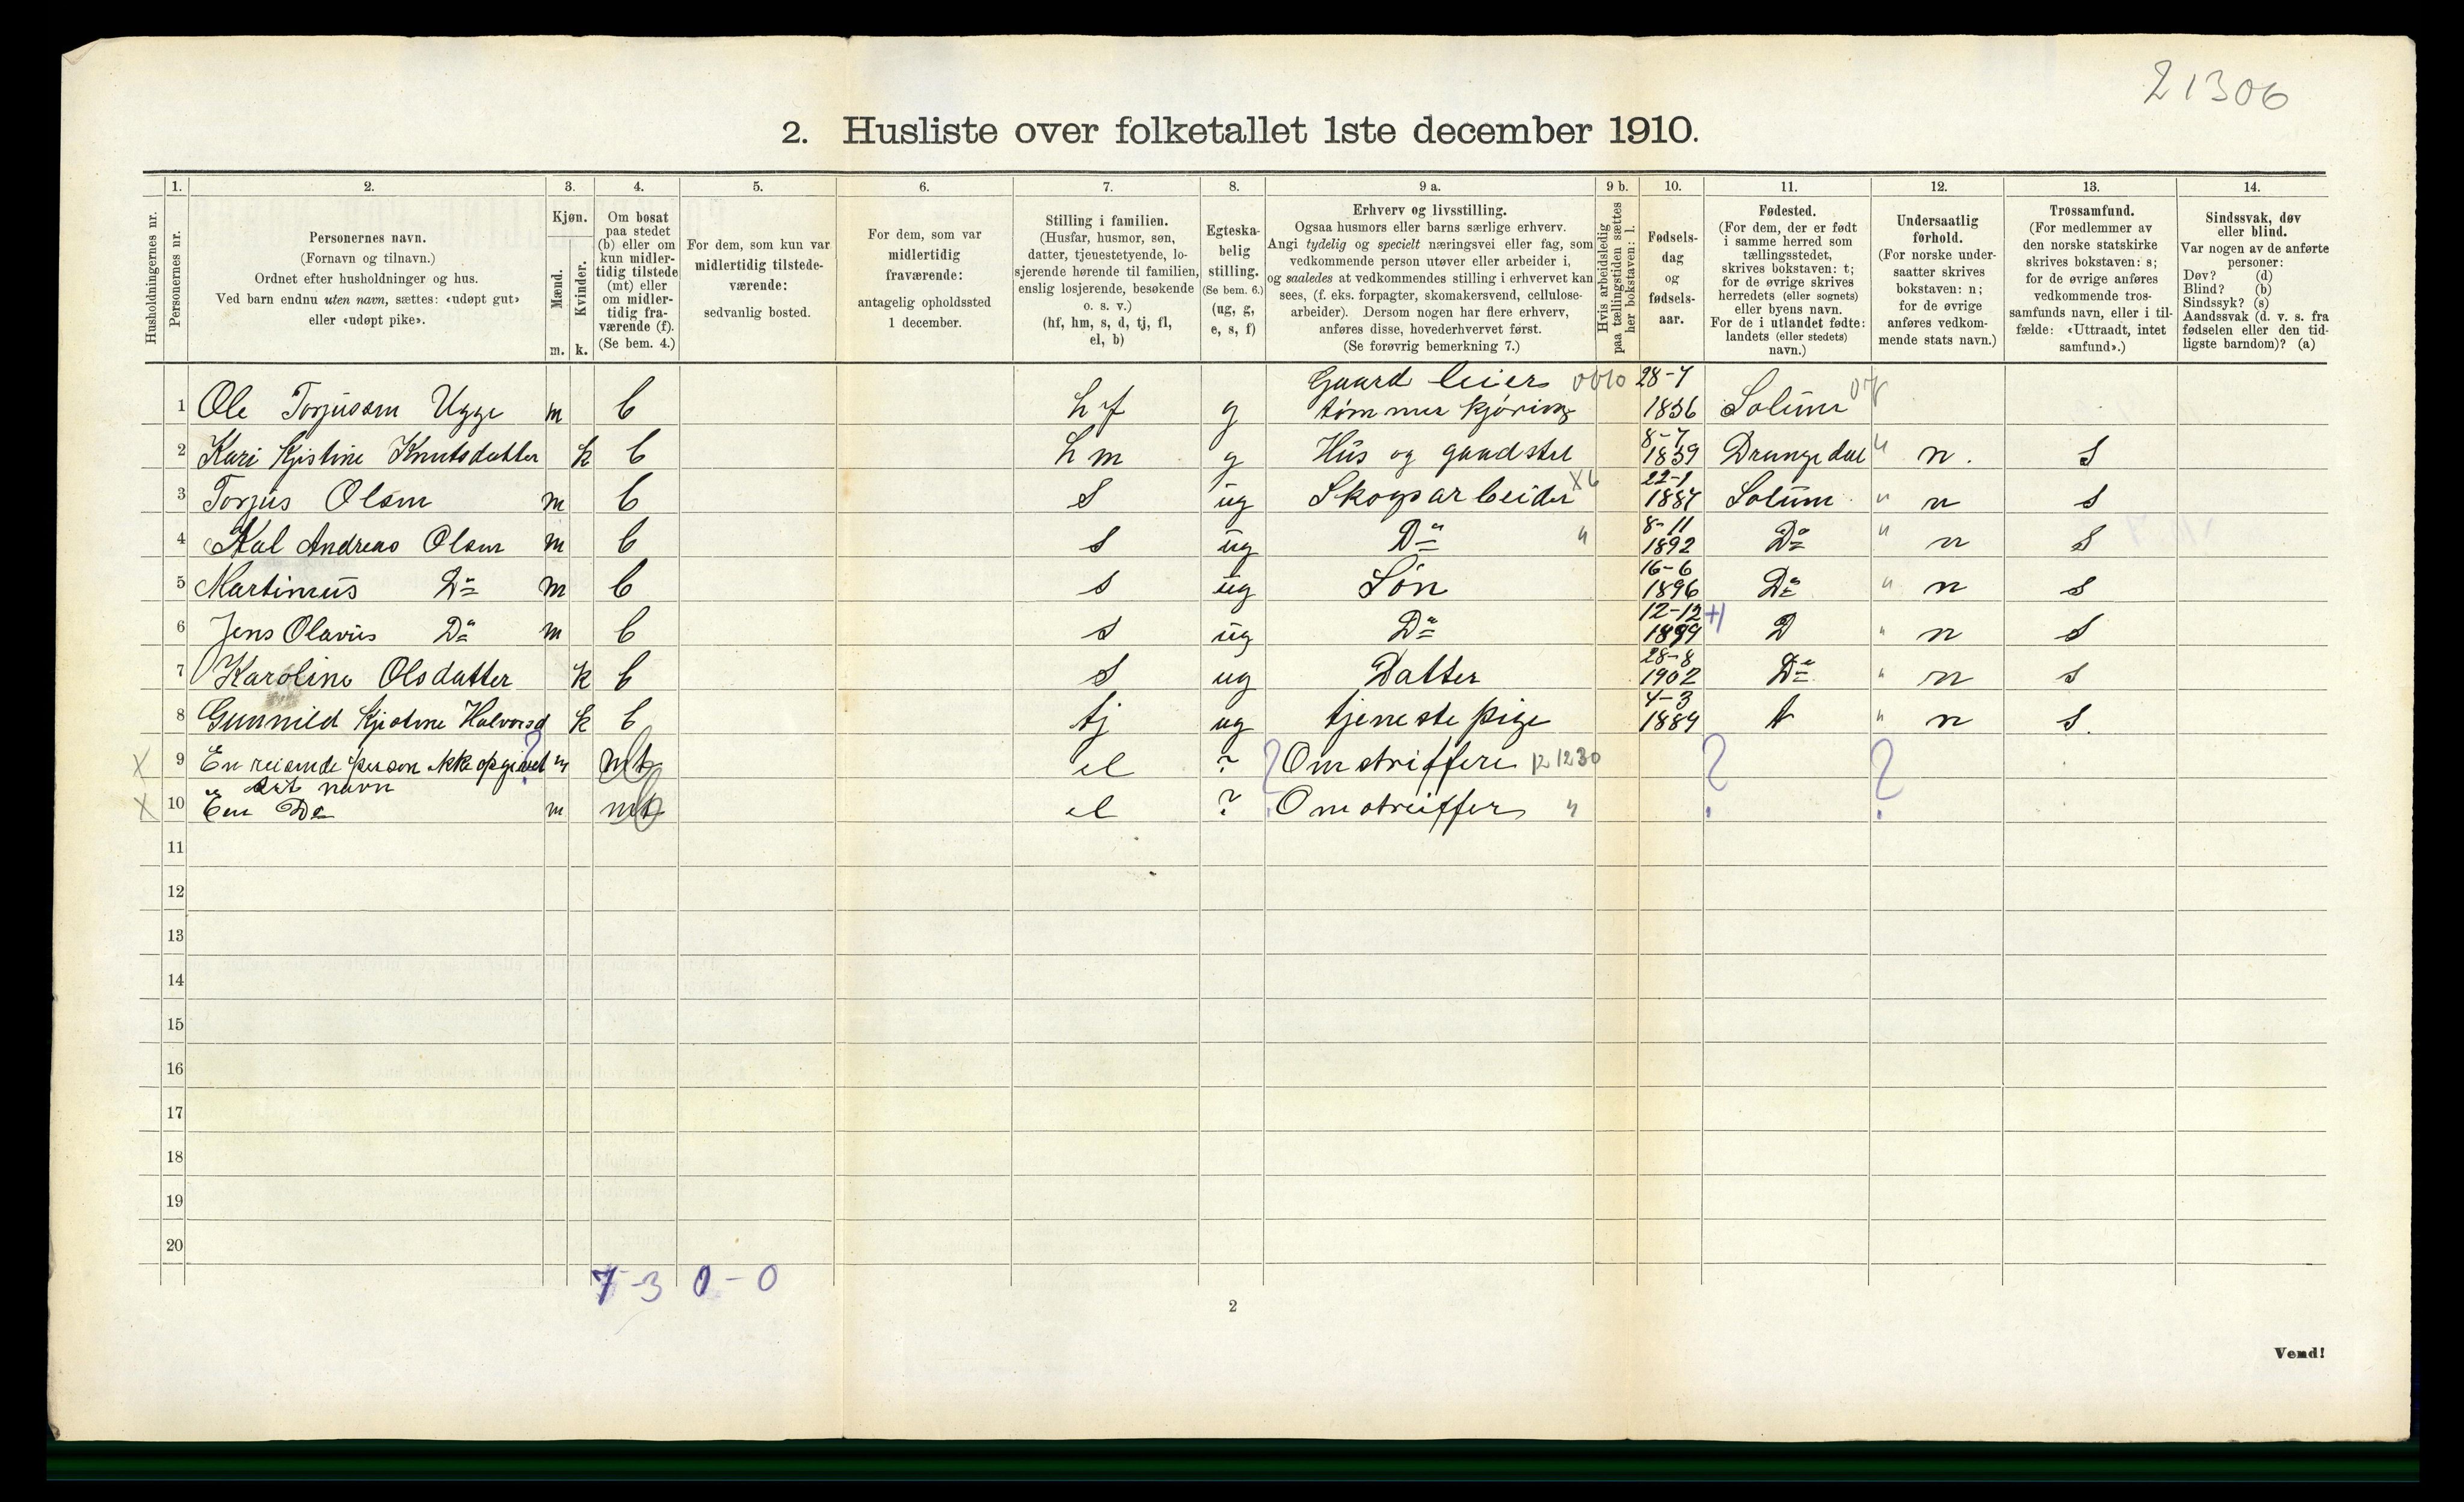 21306
2. Husliste over folketallet 1ste december 1910.
Husholdningernes nr.
1. Personernes nr.
2. Personernes navn.
(Fornavn og tilnavn.)
Ordnet efter husholdninger og hus.
Ved barn endnu uten navn, sættes: «udøpt gut»
eller «udøpt pike».
3. Kjøn.
Mænd. Kvinder.
m. k.
4. Om bosat
paa stedet
(b) eller om
kun midler-
tidig tilstede
(mt) eller
om midler-
tidig fra-
værende (f).
(Se bem. 4.)
5. For dem, som kun var
midlertidig tilstede-
værende:
sedvanlig bosted.
6. For dem, som var
midlertidig
fraværende:
antagelig opholdssted
1 december.
7. Stilling i familien.
(Husfar, husmor, søn,
datter, tjenestetyende, lo-
sjerende hørende til familien,
enslig losjerende, besøkende
o. s. v.)
(hf, hm, s, d, tj, fl,
el, b)
8. Egteska-
belig
stilling.
(Se bem. 6.)
(ug, g,
e, s, f)
9 a. Erhverv og livsstilling.
Ogsaa husmors eller barns særlige erhverv.
Angi tydelig og specielt næringsvei eller fag, som
vedkommende person utøver eller arbeider i,
og saaledes at vedkommendes stilling i erhvervet kan
sees, (f. eks. forpagter, skomakersvend, cellulose-
arbeider). Dersom nogen har flere erhverv,
anføres disse, hovederhvervet først.
(Se forøvrig bemerkning 7.)
9 b. Hvis arbeidsledig
paa tællingstiden sættes
her bokstaven: l.
10. Fødsels-
dag
og
fødsels-
aar.
11. Fødested.
(For dem, der er født
i samme herred som
tællingsstedet,
skrives bokstaven: t;
for de øvrige skrives
herredets (eller sognets)
eller byens navn.
For de i utlandet fødte:
landets (eller stedets)
navn.)
12. Undersaatlig
forhold.
(For norske under-
saatter skrives
bokstaven: n;
for de øvrige
anføres vedkom-
mende stats navn.)
13. Trossamfund.
(For medlemmer av
den norske statskirke
skrives bokstaven: s;
for de øvrige anføres
vedkommende tros-
samfunds navn, eller i til-
fælde: «Uttraadt, intet
samfund».)
14. Sindssvak, døv
eller blind.
Var nogen av de anførte
personer:
Døv? (d)
Blind? (b)
Sindssyk? (s)
Aandssvak (d. v. s. fra
fødselen eller den tid-
ligste barndom)? (a)
Gaard leier 28-7
1 Ole Torjussen Ugge m b hf g tømmer kjøring 1856 Solum
8-7
2 Kari Kjistine Knutsdatter k b hm g Hus og gaadstel 1859 Drangedal " n. s
22-1
3 Torjus Olsen m b s ug Skogsarbeider 1887 Solum " n s
8-11
4 Kal Andreas Olsen m b s ug Do " 1892 Do " n s
16-6
5 Martinius Do m b s ug Søn 1896 Do " n s
12-12
6 Jens Olavus Do m b s ug Do 1899 D " n s
28-8
7 Karoline Olsdatter k b s ug Datter 1902 Do " n s
4-3
8 Gunnild Kjistine Halvorsd k b tj ug tjeneste pige 1889 t " n s.
X 9 En reisende person ikke opgivet m mt el ? Omstriffere 1230 ? ?
sit navn
X 10 En Do m mt el ? Omstreiffer "
11
12
13
14
15
16
17
18
19
20
7-3 0-0
2
Vend!